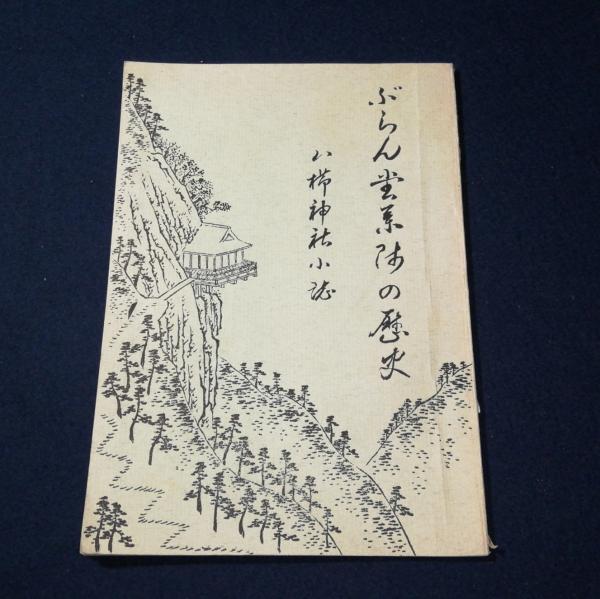 ぶらん堂薬師の歴史
八櫛神社小誌